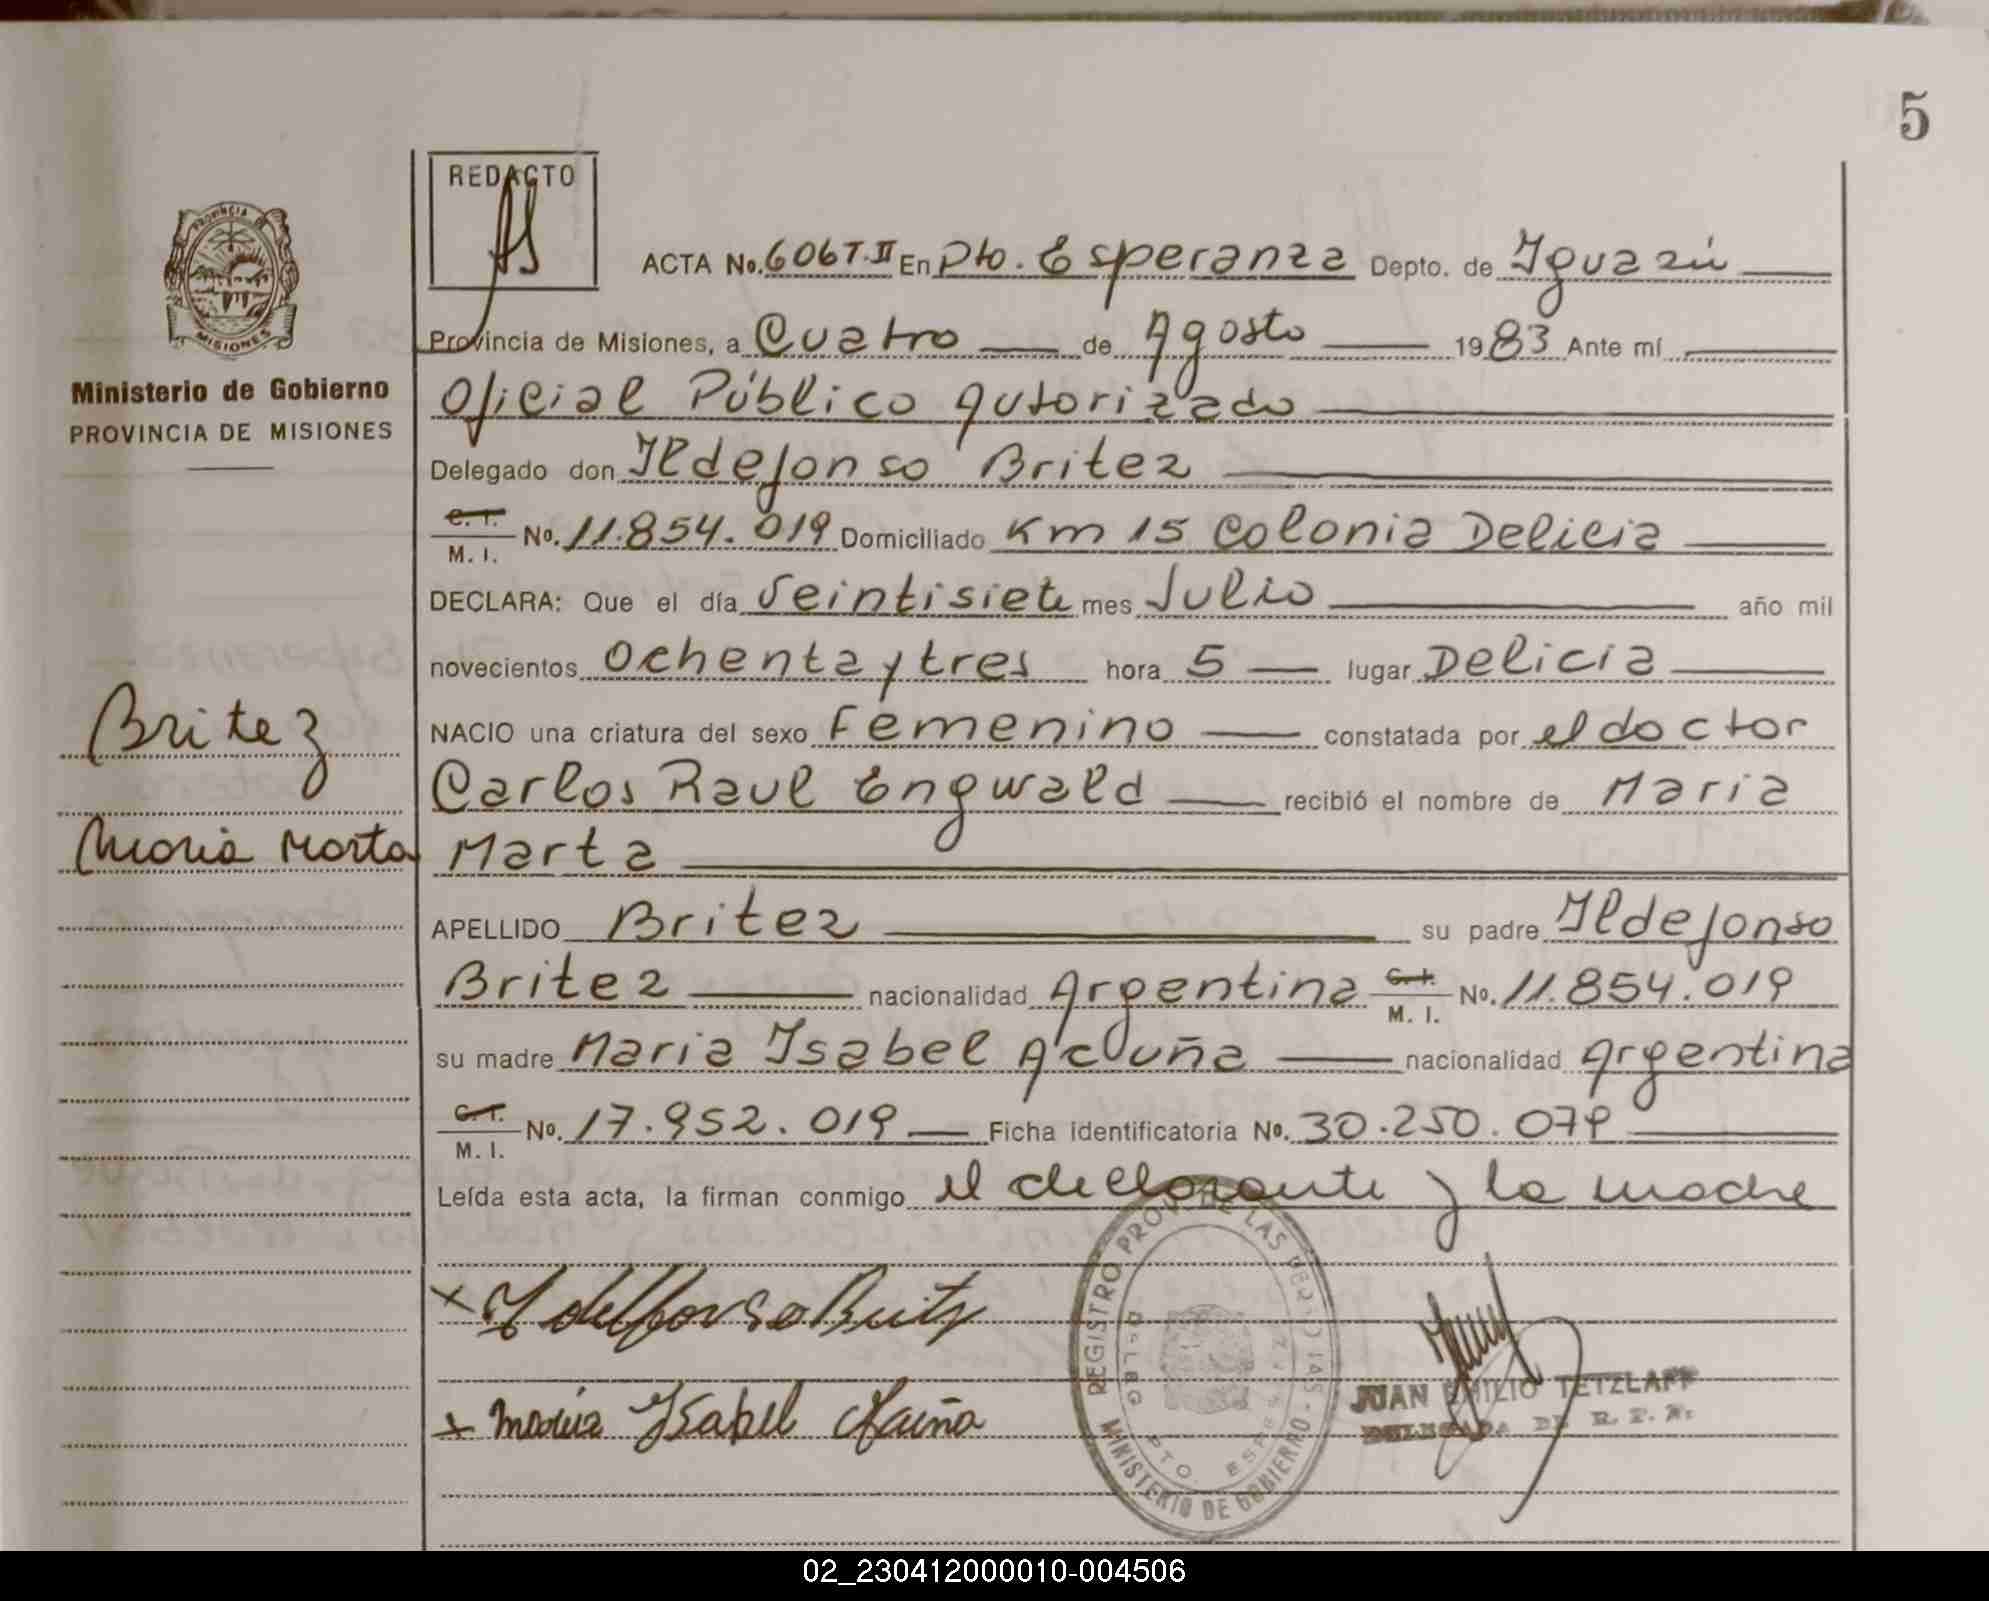 5
REDACTO
PROVINCIA DE
MISIONES
Ministerio de Gobierno
PROVINCIA DE MISIONES
ACTA No. 606 T. II En Pto. Esperanza Depto. de Iguazú
Provincia de Misiones, a Cuatro de Agosto 1983 Ante mí
Oficial Público Autorizado
Delegado don Ildefonso Britez
C. I. M. I. No. 11.854.019 Domiciliado Km 15 Colonia Delicia
DECLARA: Que el día Veintisiete mes Julio año mil
novecientos Ochenta y tres hora 5 lugar Delicia
Britez
NACIO una criatura del sexo Femenino constatada por el doctor
Carlos Raul Engwald recibió el nombre de Maria
Maria Marta
Marta
APELLIDO Britez su padre Ildefonso
Britez nacionalidad Argentina C. I. M. I. No. 11.854.019
su madre Maria Isabel Acuña nacionalidad Argentina
C. I. M. I. No. 17.952.019 Ficha identificatoria No. 30.250.079
Leída esta acta, la firman conmigo el declarante y la madre
x Ildelfonso Britz
x Maria Isabel Acuña
REGISTRO PROV. DE LAS PERSONAS - MINISTERIO DE GOBIERNO
DELEG PTO. ESPERANZA
JUAN EMILIO TETZLAFF
DELEGADA DE R. P. P.
02_230412000010-004506